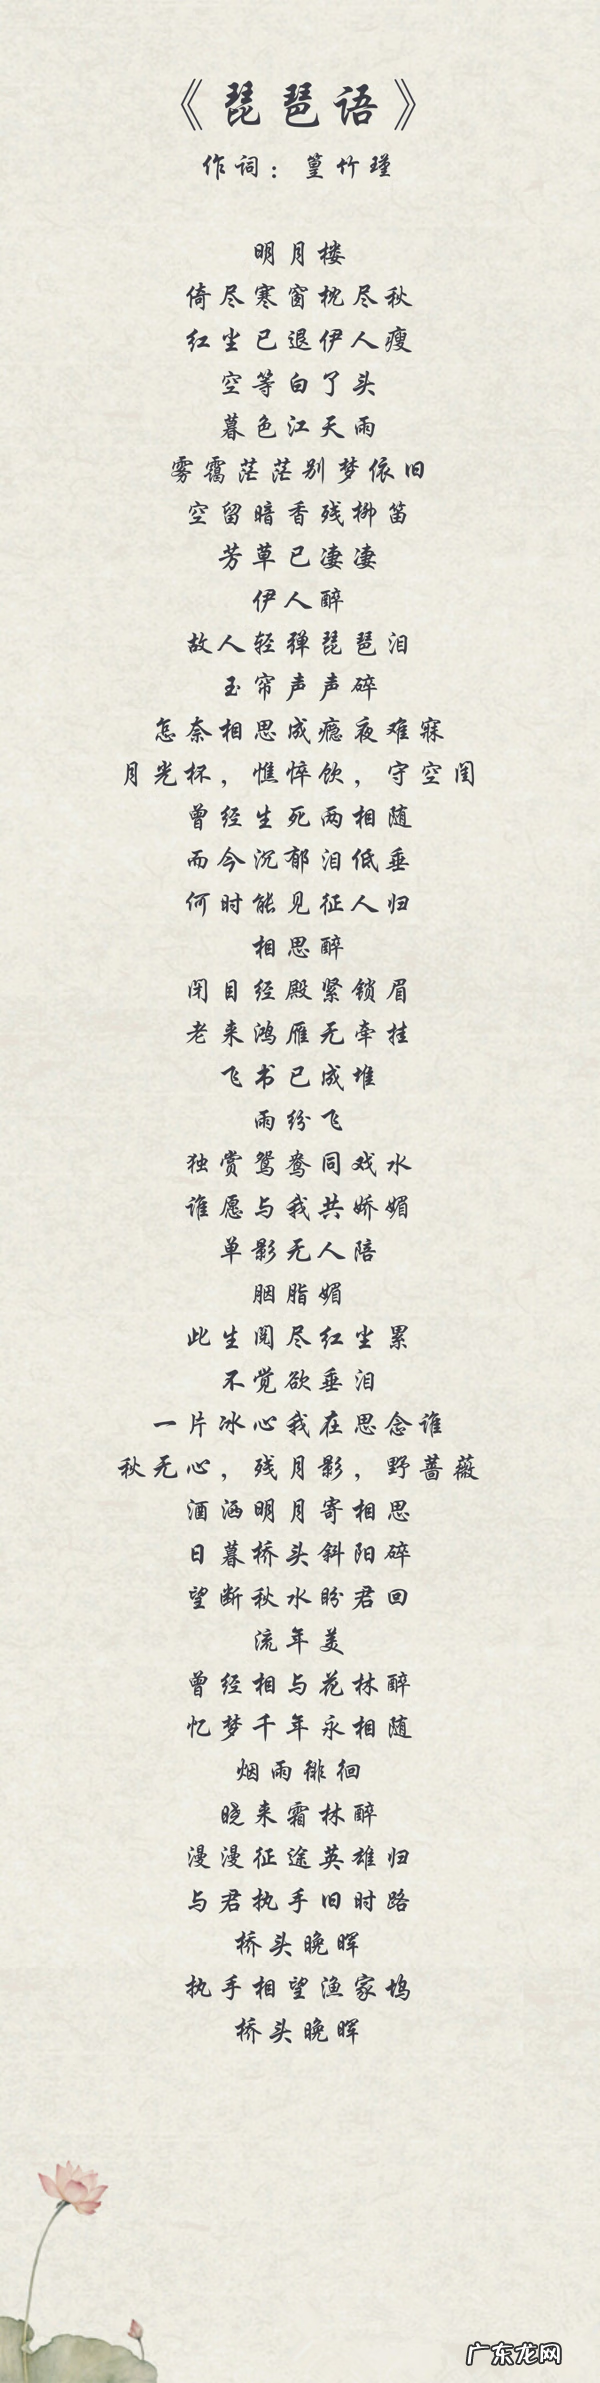 《琵琶语》
作词：篁竹瑾
明月楼
倚尽寒窗枕尽秋
红尘已退伊人瘦
空等白了头
暮色江天雨
雾霭茫茫别梦依旧
空留暗香残柳笛
芳草已凄凄
伊人醉
故人轻弹琵琶泪
玉帘声声碎
怎奈相思成瘾夜难寐
月光杯，憔悴饮，守空闺
曾经生死两相随
而今沉郁泪低垂
何时能见征人归
相思醉
闭目经殿紧锁眉
老来鸿雁无牵挂
飞书已成堆
雨纷飞
独赏鸳鸯同戏水
谁愿与我共娇媚
单影无人陪
胭脂媚
此生阅尽红尘累
不觉欲垂泪
一片冰心我在思念谁
秋无心，残月影，野蔷薇
酒洒明月寄相思
日暮桥头斜阳碎
望断秋水盼君回
流年美
曾经相与花林醉
忆梦千年永相随
烟雨徘徊
晓来霜林醉
漫漫征途英雄归
与君执手旧时路
桥头晚晖
执手相望渔家坞
桥头晚晖
广东龙网